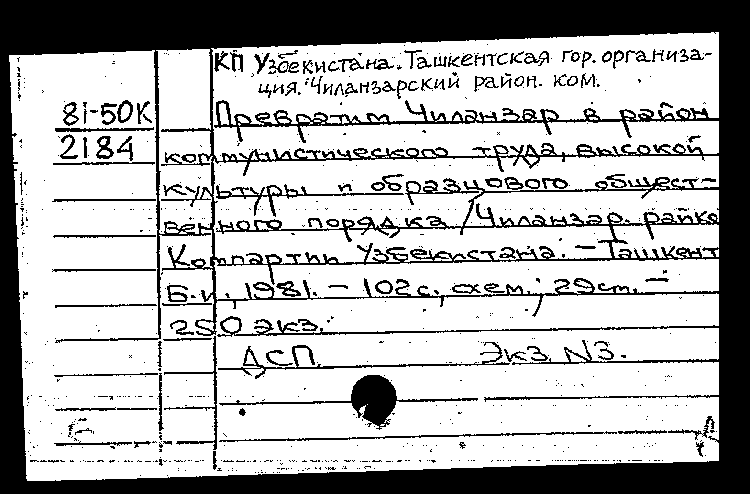 КП Узбекистана. Ташкентская гор. организа-
ция. Чиланзарский район. ком.
81-50К Превратим Чиланзар в район
2184 коммунистического труда, высокой
культуры и образцового общест-
венного порядка / Чиланзар. райко
Компартии Узбекистана. – Ташкент
Б.и., 1981. – 102 с., схем.; 29 см. –
250 экз.
ДСП Экз. N3.
Б